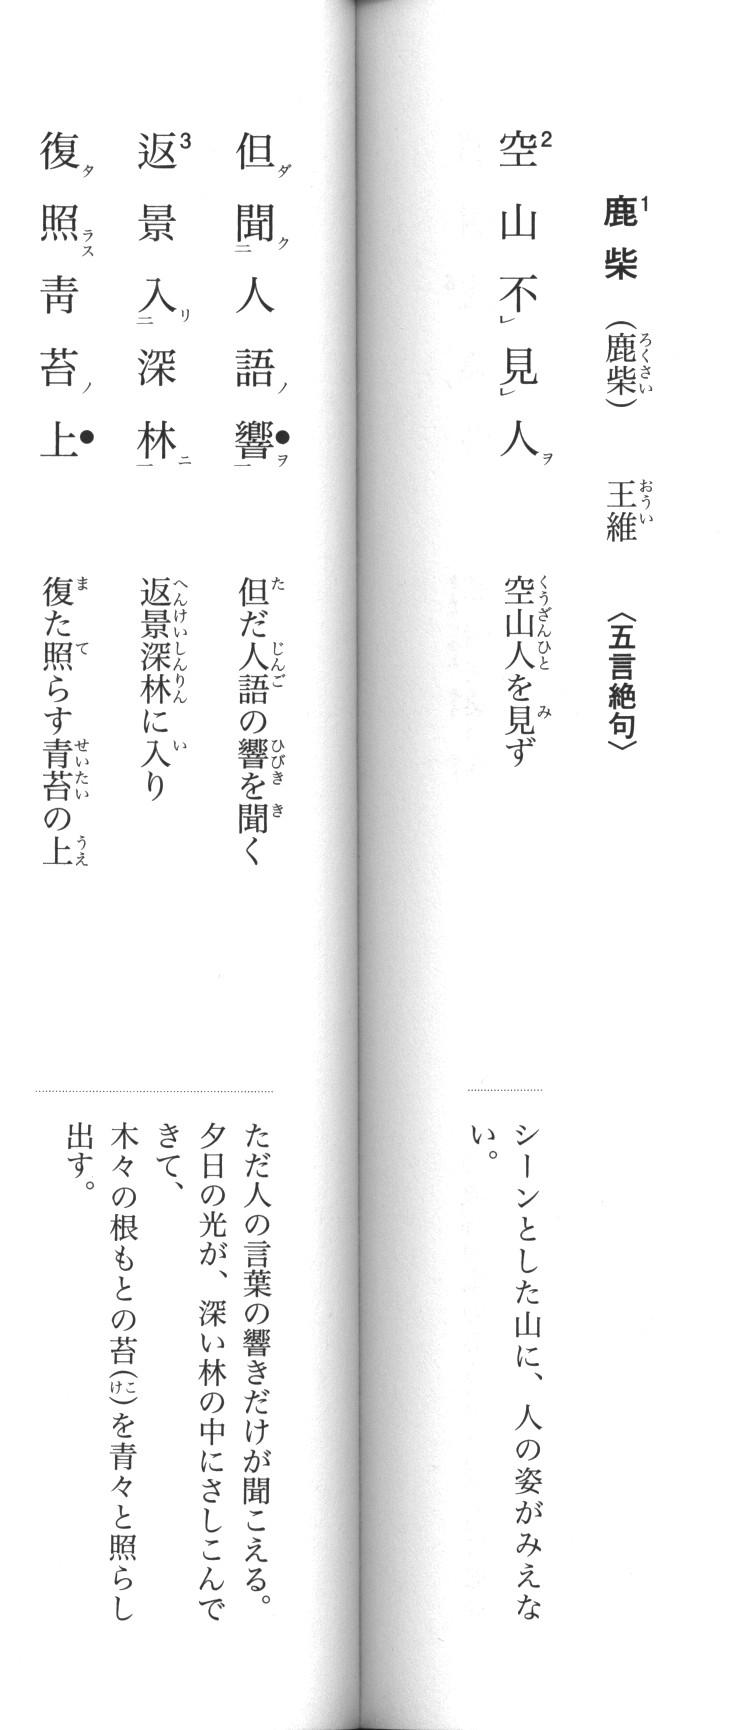 鹿柴1（鹿柴ろくさい） 王維おうい 〈五言絶句〉
空2山不レ見レ人ヲ
空山人くうざんひとを見みず
シーンとした山に、人の姿がみえな
い。
但ダ聞ク二人語ノ響ヲ一●
但ただ人語じんごの響ひびきを聞きく
ただ人の言葉の響きだけが聞こえる。
返3景入リ二深林ニ一
返景深林へんけいしんりんに入いり
夕日の光が、深い林の中にさしこんで
きて、
復タ照ラス青苔ノ上●
復また照てらす青苔せいたいの上うえ
木々の根もとの苔（こけ）を青々と照らし
出す。